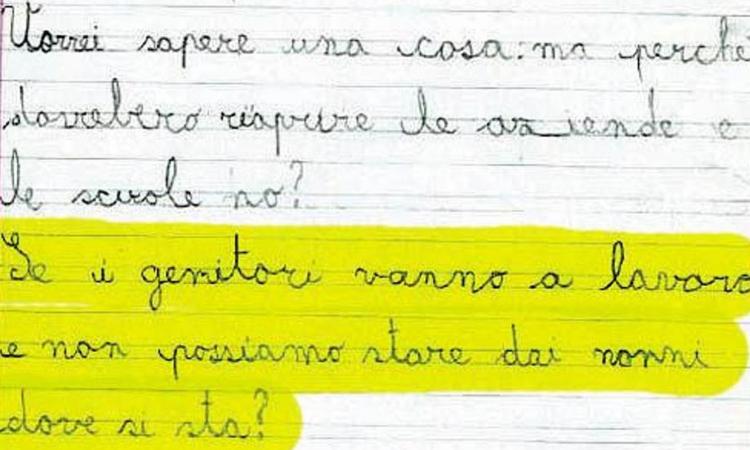 Vorrei sapere una cosa: ma perche
dovrebero riaprire le aziende e
le scuole no?
Se i genitori vanno a lavoro
e non possiamo stare dai nonni
dove si sta?